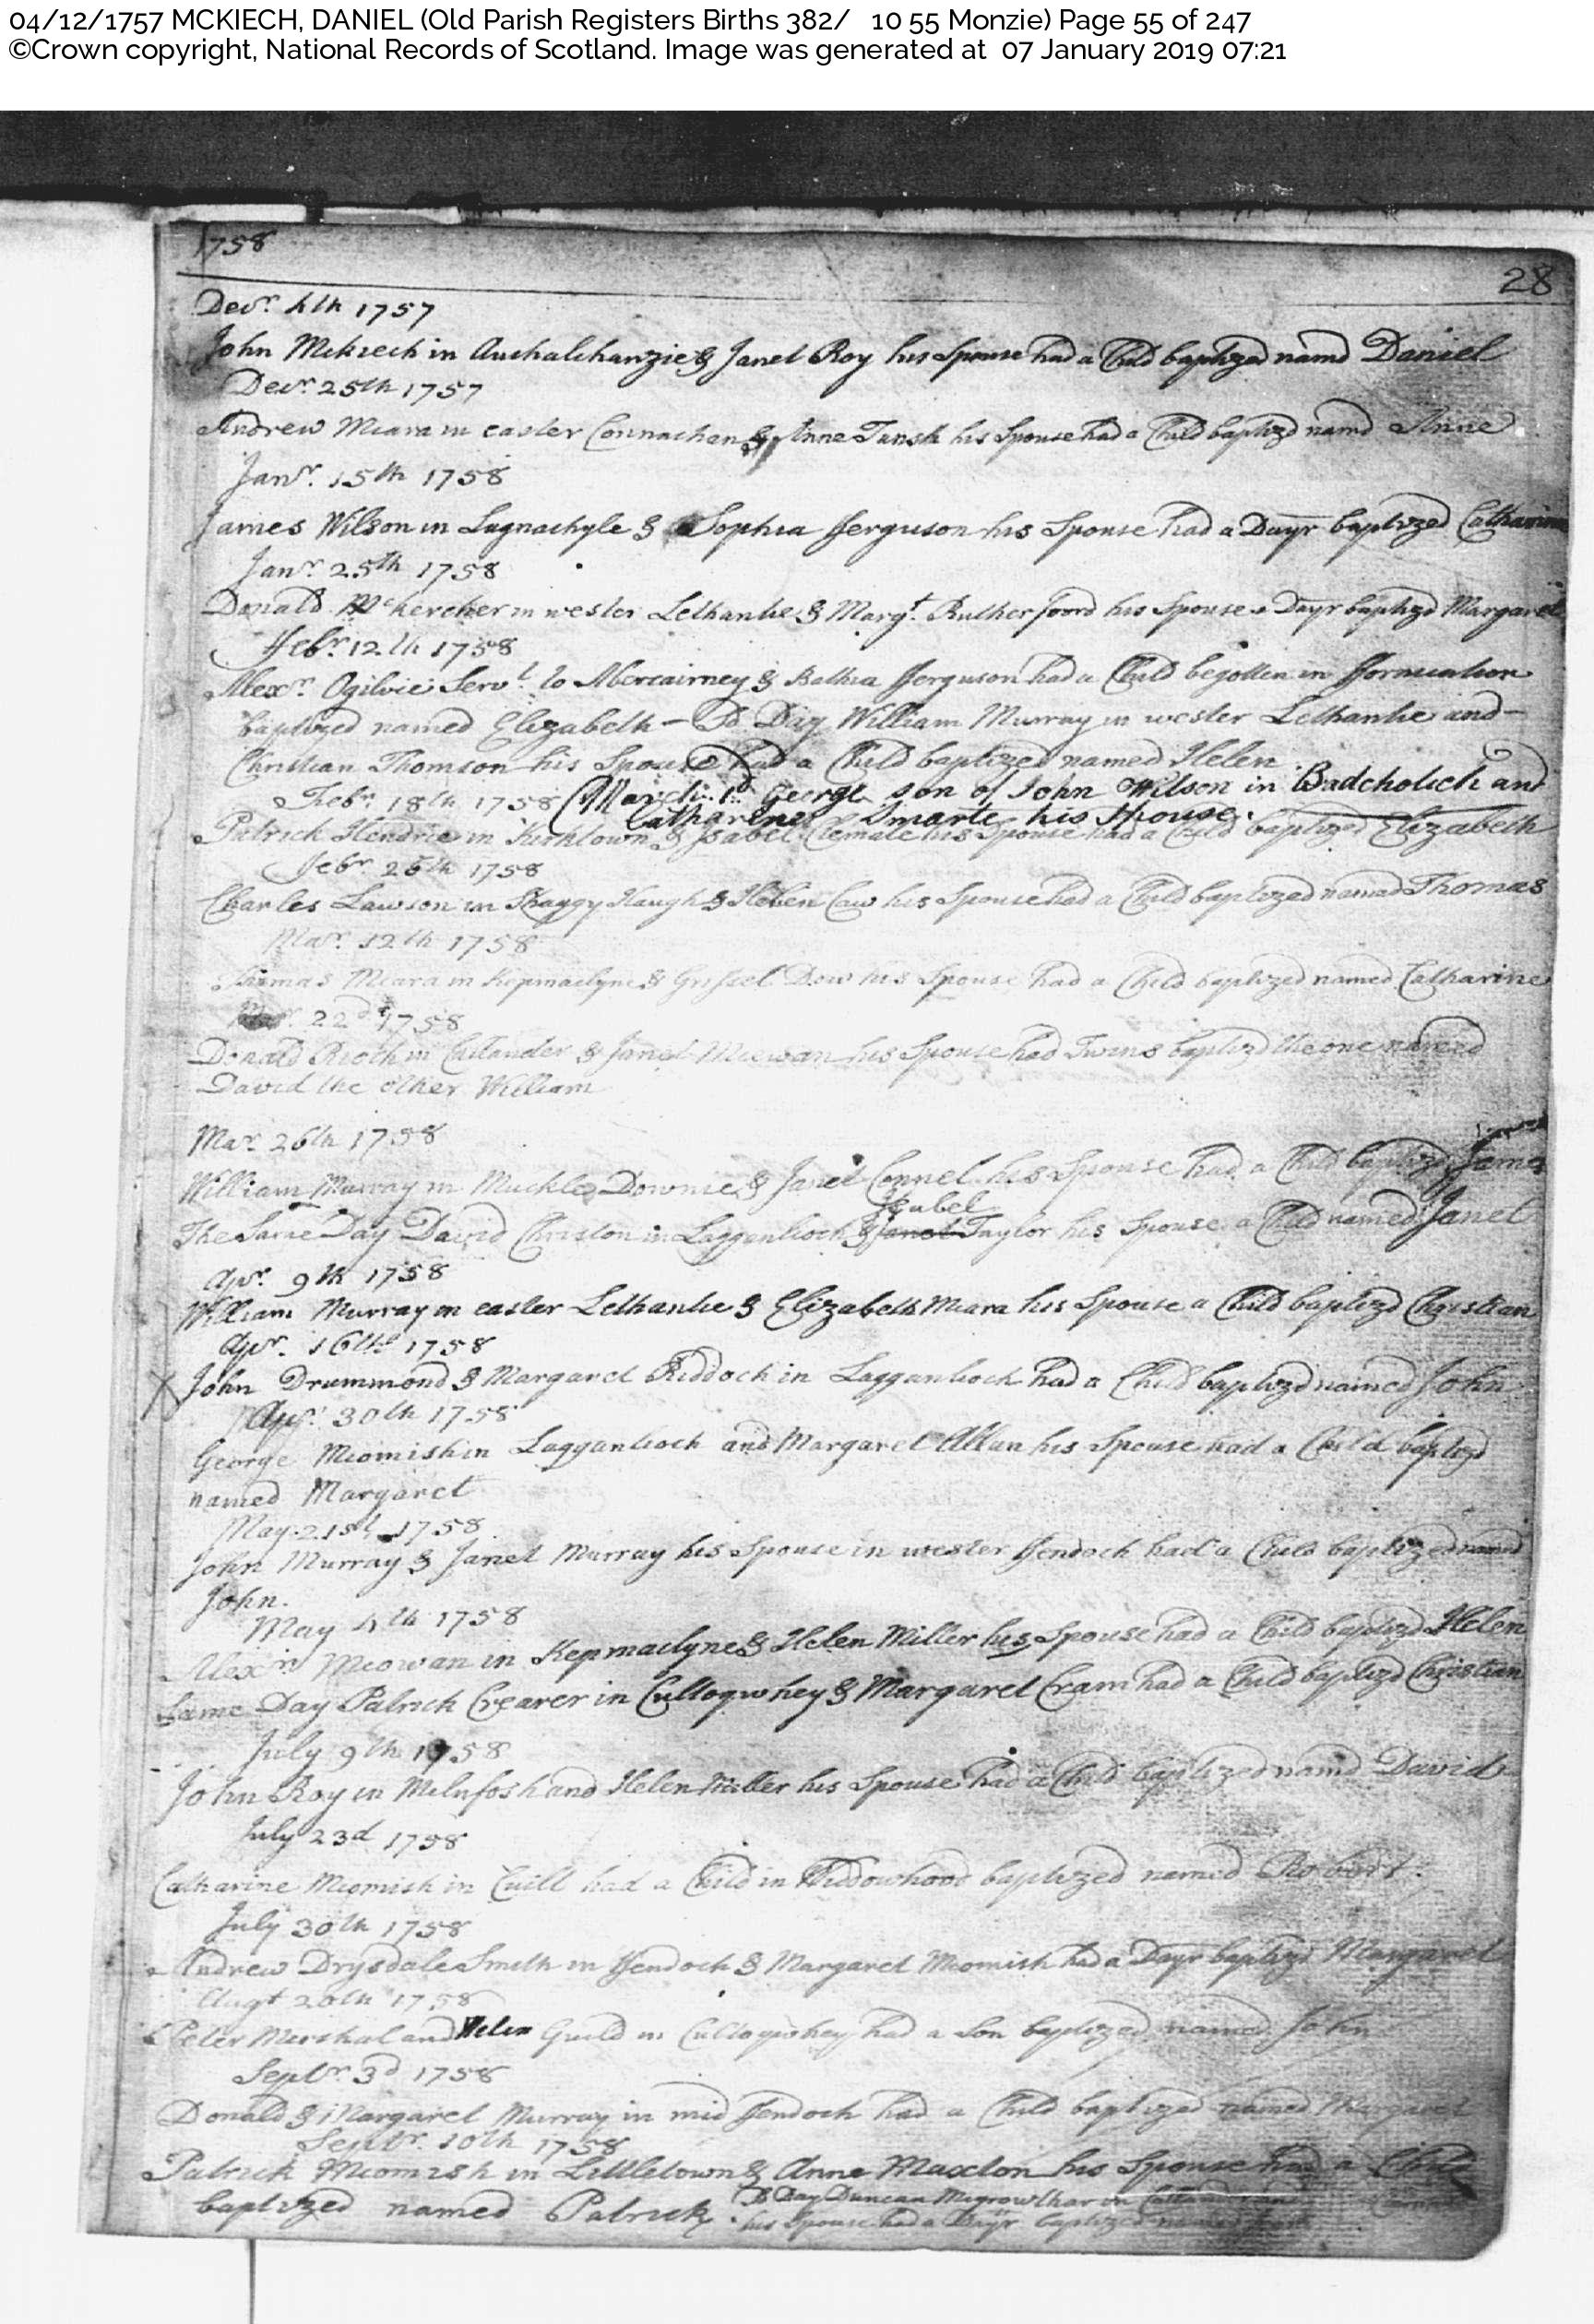 04/12/1757 MCKIECH, DANIEL (Old Parish Registers Births 382/ 10 55 Monzie) Page 55 of 247
©Crown copyright, National Records of Scotland. Image was generated at 07 January 2019 07:21
1758
28
Decr. 4th 1757
John Mckiech in Auchalchanzie & Janet Roy his Spouse had a Child baptized namd Daniel
Decr. 25th 1757
Andrew Mcara in easter Connachan & Anne his Spouse had a Child baptizd namd Anne
Janr. 15th 1758
James Wilson in Lagnachyle & Sophia fferguson his Spouse had a Dayr baptized Catharine
Janr. 25th 1758
Donald McKercher in wester Lethanhe & Margt. Rutherfoord his Spouse a Dayr baptizd Margaret
ffebr. 12th 1758
Alexr. Ogilvie Servt. to Abercairney & Bathia fferguson had a Child begotten in fformication
baptized named Elizabeth — Sd Day William Murray in wester Lethanhe and —
Christian Thomson his Spouse had a Child baptized named Helen
Febr. 18th 1758 (March 1d George son of John Wilson in Badcholich and
Catharine Smart his Spouse.
Patrick Hendrie in Kirktown & Isabel his Spouse had a Child baptized Elizabeth
ffebr. 26th 1758
Charles Lawson in Shaggy Haugh & Helen Caw his Spouse had a Child baptized named Thomas
Mar. 12th 1758
Thomas Mcara in Kepmaclyne & Grissel Dow his Spouse had a Child baptized named Catharine
Mar. 22d 1758
Donald Rioch in Callander & Janet Mcewan his Spouse had Twins baptizd the one named
David the other William
Mar. 26th 1758
William Murray in Muckle Downie & Janet Connel his Spouse had a Child baptizd James
Isabel
The Same Day David Christon in Lagganlioch & Janet Taylor his Spouse a Child named Janet
Apr. 9th 1758
William Murray in easter Lethanhe & Elizabeth Mcara his Spouse a Child baptizd Christian
Apr. 16th 1758
X John Drummond & Margaret Riddoch in Lagganlioch had a Child baptizd named John
Apr. 30th 1758
George Mcomish in Lagganlioch and Margaret Allan his Spouse had a Child baptizd
named Margaret
May 21st 1758
John Murray & Janet Murray his Spouse in wester ffendoch had a Child baptized named
John.
May 4th 1758
Alexr. Mcowan in Kepmaclyne & Helen Miller his Spouse had a Child baptizd Helen
Same Day Patrick Crearer in Culloqwhey & Margaret Cram had a Child baptizd Christian
July 9th 1758
John Roy in Milnfosh and Helen Miller his Spouse had a Child baptized namd David
July 23d 1758
Catharine Mcomish in Cuill had a Child in Widdowhood baptized named Robert.
July 30th 1758
Andrew Drysdale Smith in ffendoch & Margaret Mcomish had a Dayr baptizd Margaret
Augt 20th 1758
Peter Mershal and Helen Guild in Culloqwhey had a Son baptized named John
Septr. 3d 1758
Donald & Margaret Murray in mid ffendoch had a Child baptized named Margaret
Septr. 10th 1758
Patrick Mcomish in Littletown & Anne Maxton his Spouse had a Child
baptized named Patrick. Sd Day Duncan Mcgrowthar in Callander and
his Spouse had a Dayr baptized named